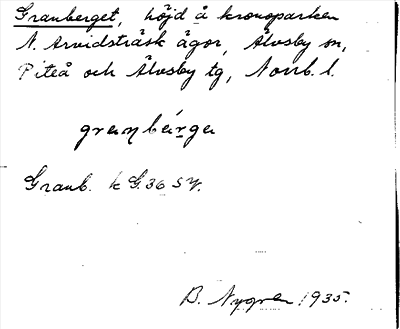 Granberget, höjd å kronoparken
N. Arvidsträsk ägor, Älvsby sn,
Piteå och Älvsby tg, Norrb. l.
granbärga
Granb. k G. 36 SV.
B. Nygren 1935.